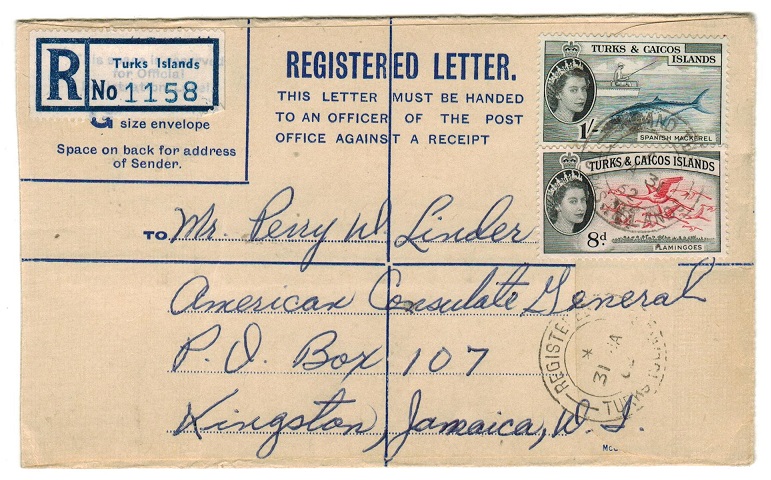 R
Turks Islands
No 1158
G size envelope
Space on back for address
of Sender.
REGISTERED LETTER.
THIS LETTER MUST BE HANDED
TO AN OFFICER OF THE POST
OFFICE AGAINST A RECEIPT
TURKS & CAICOS
ISLANDS
1/-
SPANISH MACKEREL
TURKS & CAICOS ISLANDS
8d
FLAMINGOES
TO Mr. Perry W. Linder
American Consulate General
P. O. Box 107
Kingston, Jamaica, W. I.
31